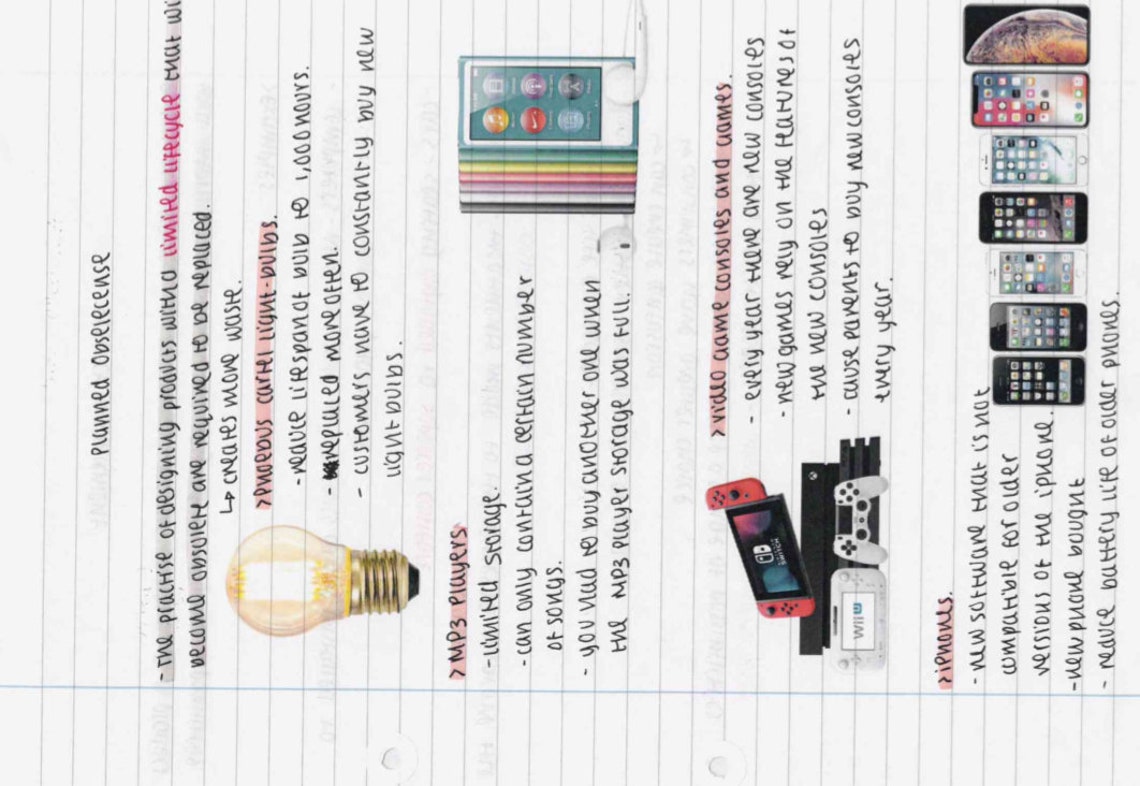 planned obselecense
- The practise of designing products with a limited lifecycle that wi
become obsolete are required to be replaced.
↳ creates more waste.
> Phoebus cartel light-bulbs.
- reduce lifespan of bulb to 1,000 hours.
- replaced more often.
- customers have to constantly buy new
light bulbs.
> MP3 Players
- limited storage.
- can only contain a certain number
of songs.
- you had to buy another one when
the MP3 player storage was full.
> video game consoles and games.
- every year there are new consoles
- new games rely on the features of
the new consoles
- cause parents to buy new consoles
every year.
SWITCH
Wii U
> iphones.
- new software that is not
compatible for older
versions of the iphone.
- new phone bought
- reduce battery life of older phones.